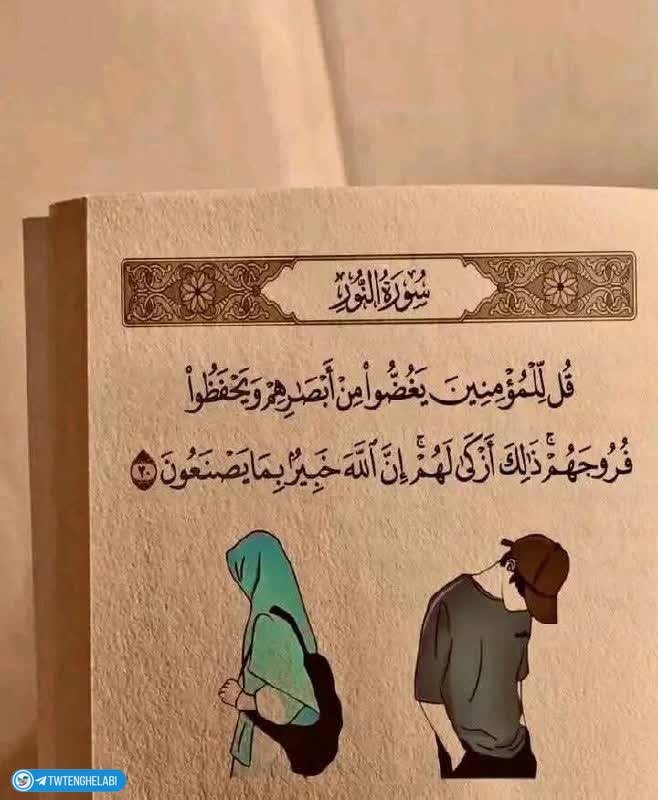 سُورَةُ النُّورِ
قُل لِّلْمُؤْمِنِينَ يَغُضُّوا۟ مِنْ أَبْصَٰرِهِمْ وَيَحْفَظُوا۟
فُرُوجَهُمْ ۚ ذَٰلِكَ أَزْكَىٰ لَهُمْ ۚ إِنَّ ٱللَّهَ خَبِيرٌۢ بِمَا يَصْنَعُونَ ٣٠
TWTENGHELABI